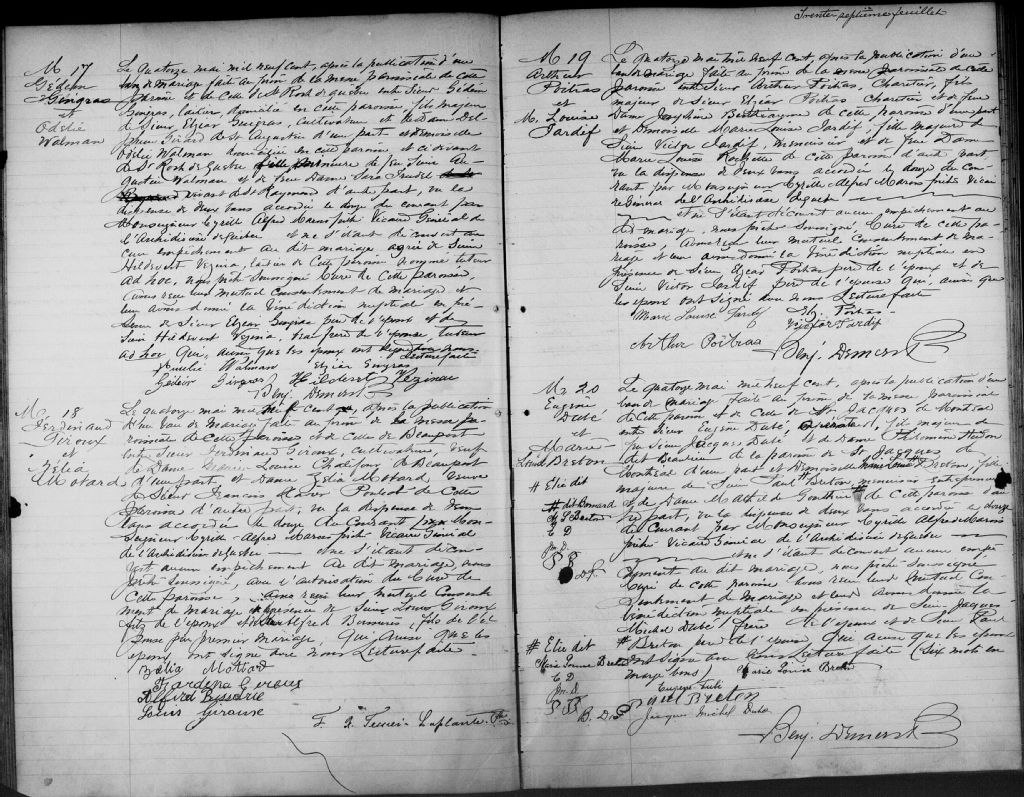 M 17
Gédéon
Gingras
et
Odélie
Walman
Le quatorze mai mil neuf cent, après la publication d'un
ban de mariage fait au prône de la messe paroissiale de cette
paroisse et de celle de St Roch de Québec entre Sieur Gédéon
Gingras, laitier, domicilié en cette paroisse, fils majeur
de Sieur Elzéar Gingras, cultivateur et de Dame
de St Augustin d'une part et Demoiselle
Odélie Walman domiciliée en cette paroisse et ci devant
de St Roch de Québec fille mineure de feu Sieur
Walman et de feu Dame
vivant de St Raymond d'autre part, vu la
dispense de deux bans accordée le douze du courant par
Monseigneur Cyrille Alfred Marois prêtre Vicaire Général de
l'Archidiocèse de Québec et ne s'étant découvert au-
cun empêchement au dit mariage, agrée de Sieur
Hildevert Vézina, laitier de cette paroisse nommé tuteur
ad hoc, nous prêtre soussigné Curé de cette paroisse,
avons reçu leur mutuel consentement de mariage et
leur avons donné la bénédiction nuptiale en pré-
sence de Sieur Elzéar Gingras père de l'époux et de
Sieur Hildevert Vézina, beau frère de l'épouse, tuteur
ad hoc qui, ainsi que les époux ont signé avec nous
Lecture faite
Walman Elzéar Gingras
Gédéon Gingras Hildevert Vézina
Benj. Demers
M 18
Ferdinand
Giroux
et
Zélia
Motard
Le quatorze mai mil neuf cent, après la publication
d'un ban de mariage fait au prône de la messe pa-
roissiale de cette paroisse et de celle de Beauport
entre Sieur Ferdinand Giroux, cultivateur, veuf
de Dame Marie Louise Chalifour de Beauport
d'une part, et Dame Zélia Motard, veuve
de Sieur François Xavier de cette
paroisse d'autre part, vu la dispense de deux
bans accordée le douze du courant par Mon-
seigneur Cyrille Alfred Marois prêtre Vicaire Général
de l'Archidiocèse de Québec et ne s'étant dé-
couvert aucun empêchement au dit mariage, nous
prêtre soussigné, avec l'autorisation du Curé de
cette paroisse, avons reçu leur mutuel consente-
ment de mariage en présence de Sieur Louis Giroux
fils de l'époux et de Alfred fils de l'é-
pouse par premier mariage, qui ainsi que les
époux ont signé avec nous Lecture faite
Zélia Motard
Giroux
Alfred
Louis Giroux
Laplante Ptre
Trente septième feuillet
M 19
Arthur
Poitras
et
M. Louise
Jardif
Le quatorze mai mil neuf cent, après la publication d'un
ban de mariage faite au prône de la messe paroissiale de cette
paroisse entre Sieur Arthur Poitras, charretier, fils
majeur de Sieur Elzéar Poitras charretier et de feue
Dame Joséphine Berthiaume de cette paroisse d'une part
et Demoiselle Marie Louise Jardif, fille majeure de
Sieur Victor Jardif, menuisier et de feue Dame
Marie Louise Rochette de cette paroisse d'autre part,
vu la dispense de deux bans accordée le douze du cou-
rant par Monseigneur Cyrille Alfred Marois prêtre Vicai-
re Général de l'Archidiocèse de Québec
et ne s'étant découvert aucun empêchement au
dit mariage, nous prêtre soussigné, Curé de cette pa-
roisse, avons reçu leur mutuel consentement de ma-
riage et leur avons donné la bénédiction nuptiale en
présence de Sieur Elzéar Poitras père de l'époux et de
Sieur Victor Jardif père de l'épouse qui, ainsi que
les époux ont signé avec nous Lecture faite
Marie Louise Tardif Elz. Poitras
Victor Tardif
Arthur Poitras
Benj. Demers
M 20
Eugène
Dubé
et
Marie
Louise Breton
# Elie dit
B. D.
# Elie dit
Marie Louise Breton
E D
B. D.
Le quatorze mai mil neuf cent, après la publication d'un
ban de mariage faite au prône de la messe paroissiale
de cette paroisse et de celle de St Jacques de Montréal
entre Sieur Eugène Dubé, fils majeur de
feu Sieur Jacques Dubé et de Dame Philomène Hudon
dit Beaulieu de la paroisse de St Jacques de
Montréal d'une part et Demoiselle Marie Louise Breton, fille
majeure de Sieur Paul Breton menuisier entrepreneur
et de Dame Mathilde Gauthier de cette paroisse d'au-
tre part, vu la dispense de deux bans accordée le douze
du courant par Monseigneur Cyrille Alfred Marois
prêtre Vicaire Général de l'Archidiocèse de Québec
et ne s'étant découvert aucun empê-
chement au dit mariage, nous prêtre soussigné
Curé de cette paroisse avons reçu leur mutuel con-
sentement de mariage et leur avons donné la
bénédiction nuptiale en présence de Sieur Jacques
Michel Dubé frère de l'époux et de Sieur Paul
# Breton père de l'épouse, qui ainsi que les époux
ont signé avec nous Lecture faite (six mots en
marge bons Marie Louise Breton
Eugène Dubé
Paul Breton
Jacques Michel Dubé
Benj. Demers